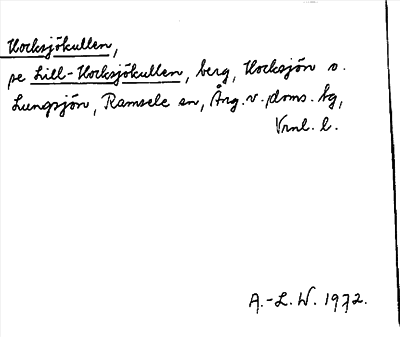 Hocksjökullen,
se Lill-Hocksjökullen, berg, Hocksjön o.
Lungsjön, Ramsele sn, Ång. v. doms. tg,
Vrnl. l.
A.-L. W. 1972.